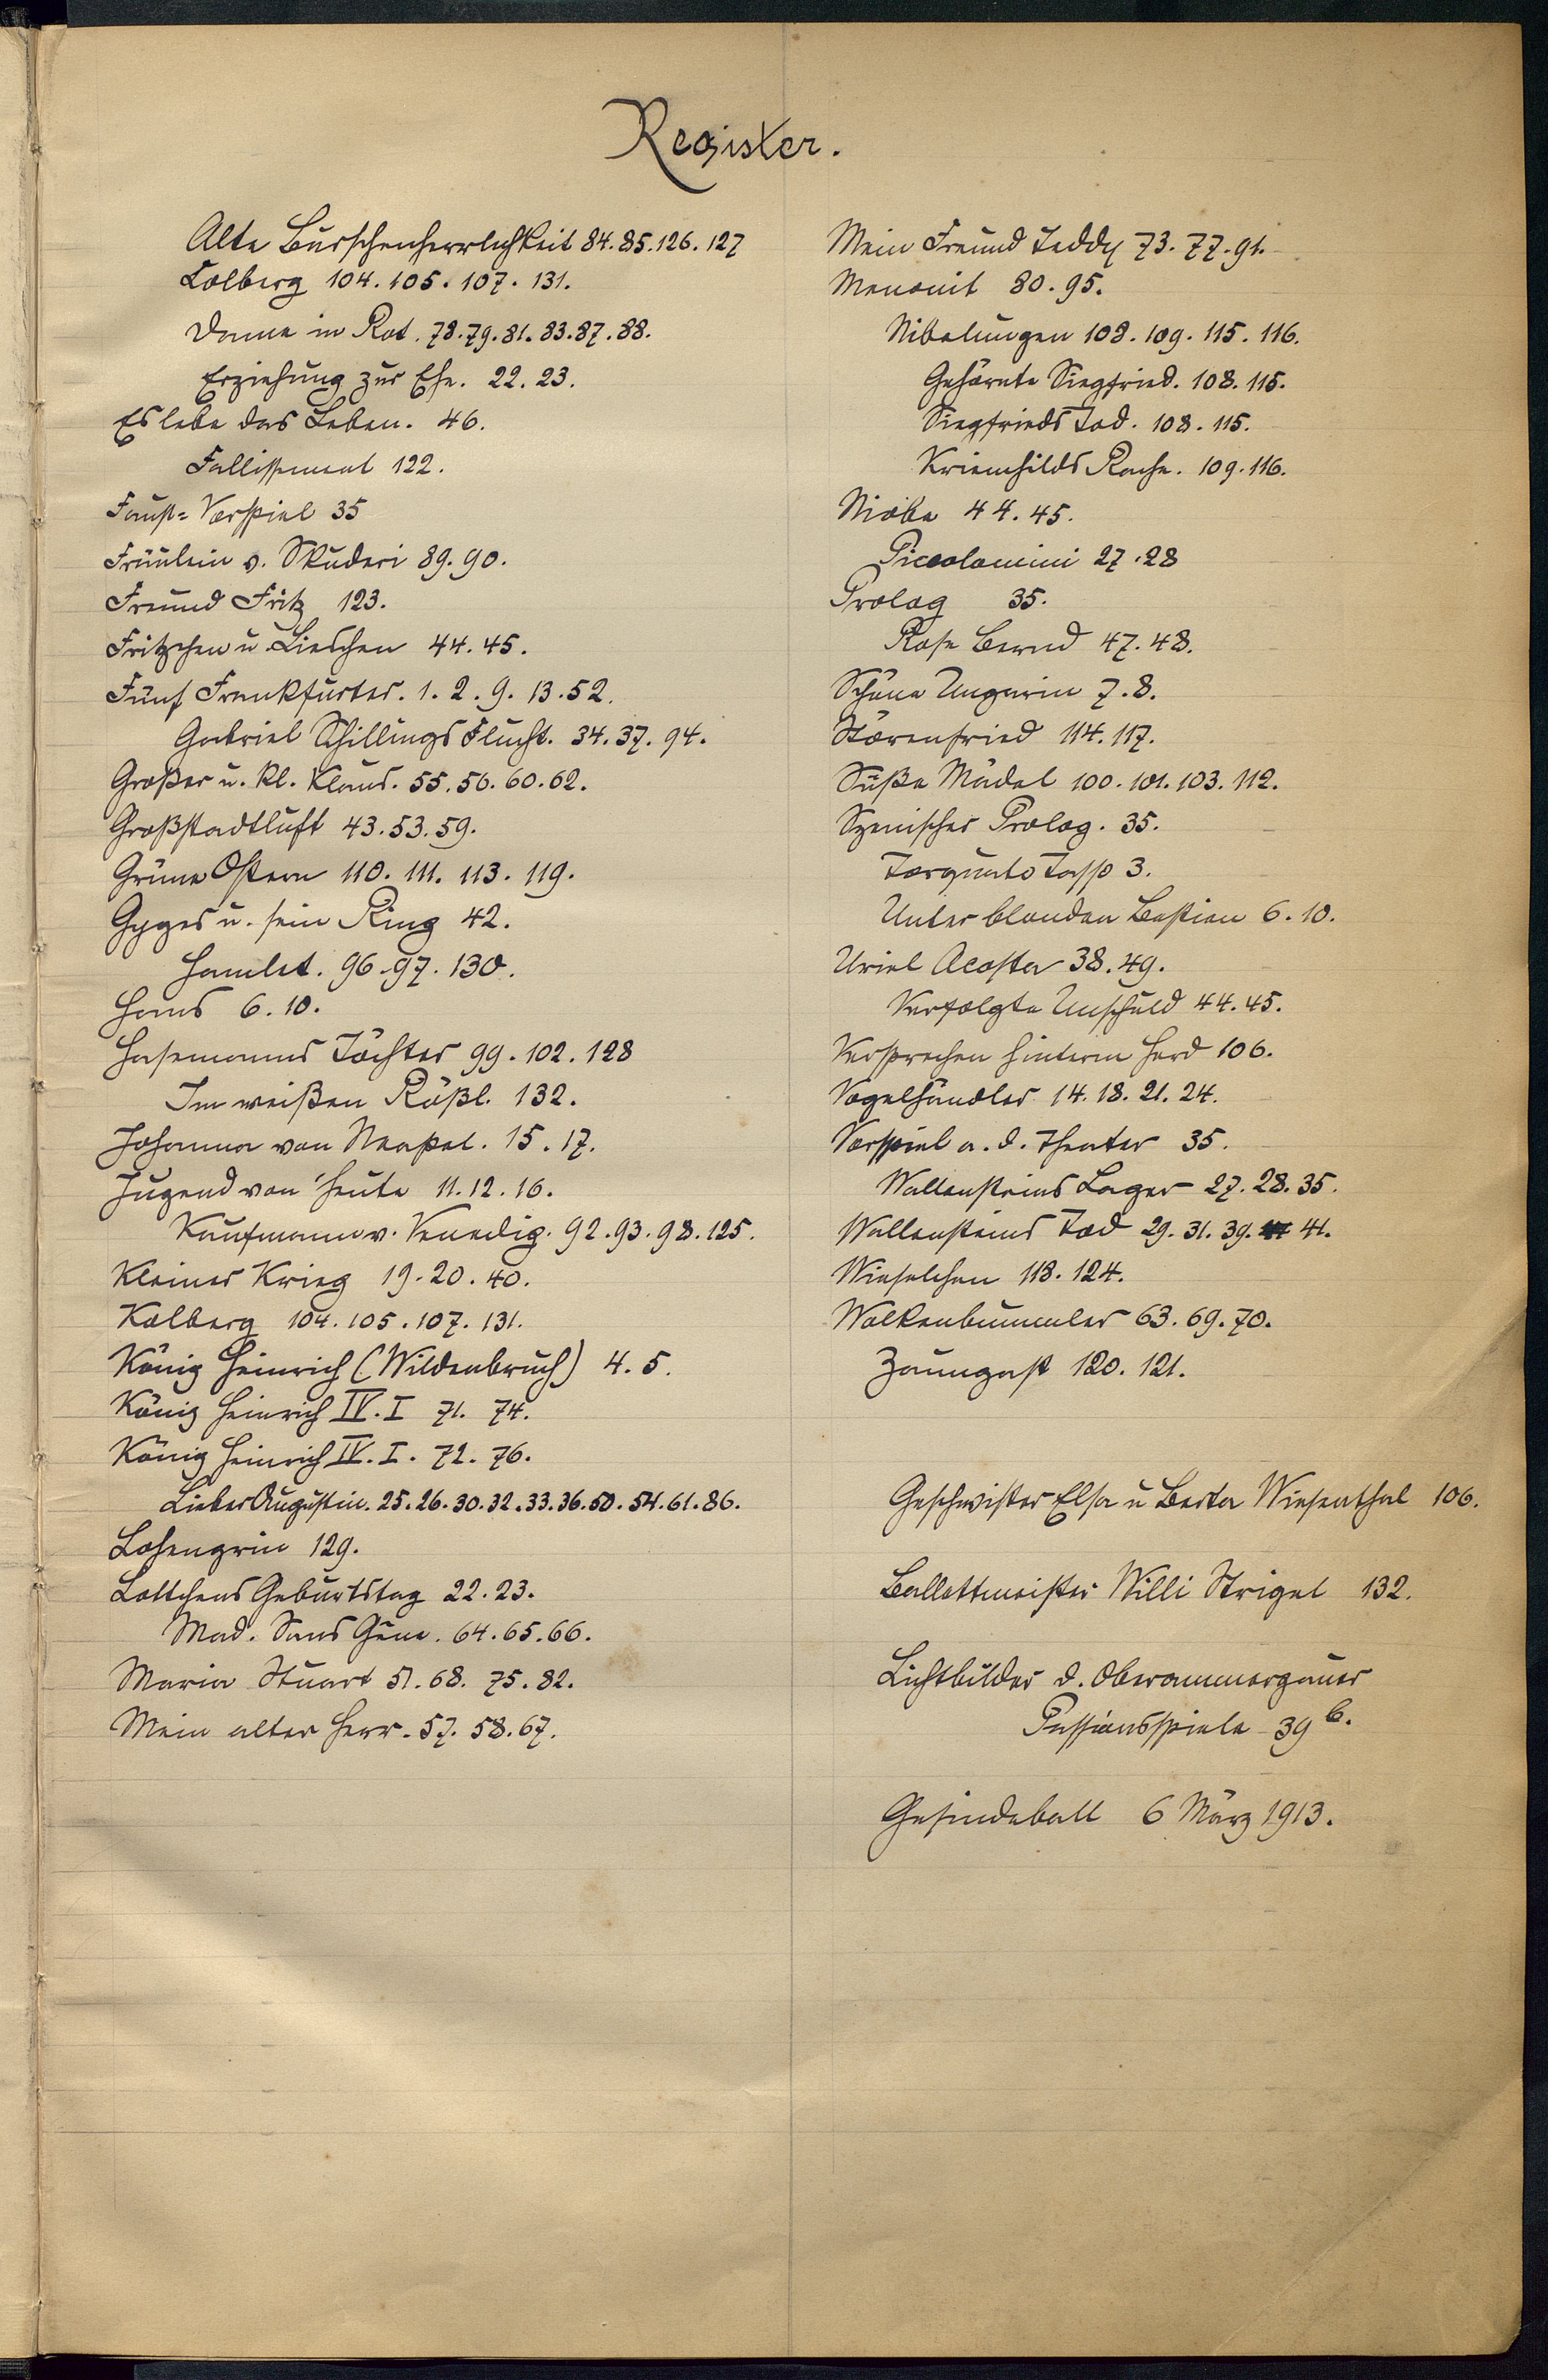 Register.
Alte Burschenherrlichkeit 84. 85. 126. 127
Colberg 104. 105. 107. 131.
Dame in Rot. 78. 79. 81. 83. 87. 88.
Erziehung zur Ehe. 22. 23.
Es lebe das Leben. 46.
Fallissement 122.
Faust= Vorspiel 35
Fräulein v. Skuderi 89. 90.
Freund Fritz 123.
Fritzchen u. Lieschen 44. 45.
Fünf Frankfurter. 1. 2. 9. 13. 52.
Gabriel Schillings Flucht. 34. 37. 94.
Großer u. kl. Klaus. 55. 56. 60. 62.
Großstadtluft 43. 53. 59.
Grüne Ostern 110. 111. 113. 119.
Gyges u. sein Ring 42.
Hamlet. 96. 97. 130.
Hans 6. 10.
Hasemanns Töchter 99. 102. 128
Im weißen Rößl. 132.
Johanna von Neapel. 15. 17.
Jugend von heute 11. 12. 16.
Kaufmann v. Venedig. 92. 93. 98. 125.
Kleiner Krieg 19. 20. 40.
Kolberg 104. 105. 107. 131.
König Heinrich (Wildenbruch) 4. 5.
König Heinrich IV. I 71. 74.
König Heinrich IV. I. 72. 76.
Lieber Augustin. 25. 26. 30. 32. 33. 36. 50. 54. 61. 86.
Lohengrin 129.
Lottchens Geburtstag 22. 23.
Mad. Sans Gêne. 64. 65. 66.
Maria Stuart 51. 68. 75. 82.
Mein alter Herr. 57. 58. 67.
Mein Freund Teddy 73. 77. 91.
Menonit 80. 95.
Nibelungen 108. 109. 115. 116.
Gehörnte Siegfried. 108. 115.
Siegfrieds Tod. 108. 115.
Kriemhilds Rache. 109. 116.
Niobe 44. 45.
Piccolomini 27. 28
Prolog 35.
Rose Bernd 47. 48.
Schöne Ungarin 7. 8.
Störenfried 114. 117.
Süße Mädel 100. 101. 103. 112.
Szenischer Prolog. 35.
Torquato Tasso 3.
Unter blonden Bestien 6. 10.
Uriel Acosta 38. 49.
Verfolgte Unschuld 44. 45.
Versprechen hinterm Herd 106.
Vogelhändler 14. 18. 21. 24.
Vorspiel a. d. Theater 35.
Wallensteins Lager 27. 28. 35.
Wallensteins Tod 29. 31. 39. 41.
Wieselchen 118. 124.
Wolkenbummler 63. 69. 70.
Zaungast 120. 121.
Geschwister Elsa u Berta Wiesenthal 106.
Ballettmeister Willi Strigel 132.
Lichtbilder d. Oberammergauer
Passionsspiele 39 b.
Gesindeball 6 März 1913.